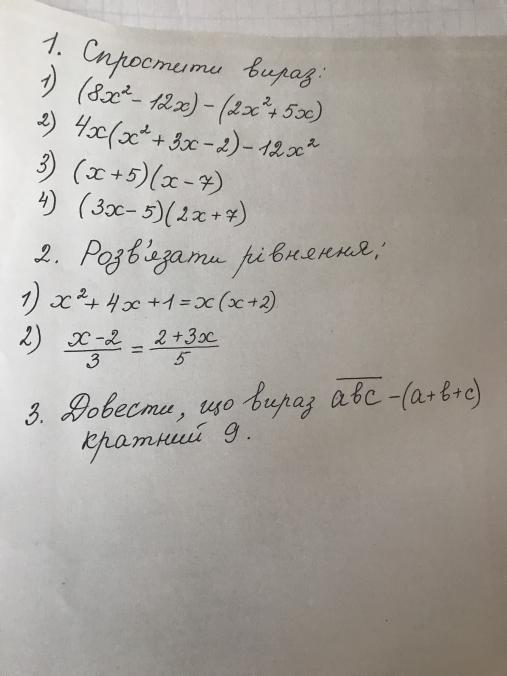 1. Спростити вираз:
1) (8x² - 12x) - (2x² + 5x)
2) 4x(x² + 3x - 2) - 12x²
3) (x + 5)(x - 7)
4) (3x - 5)(2x + 7)
2. Розв'язати рівняння:
1) x² + 4x + 1 = x(x + 2)
2) (x - 2)/3 = (2 + 3x)/5
3. Довести, що вираз a̅b̅c̅ - (a + b + c)
кратний 9.